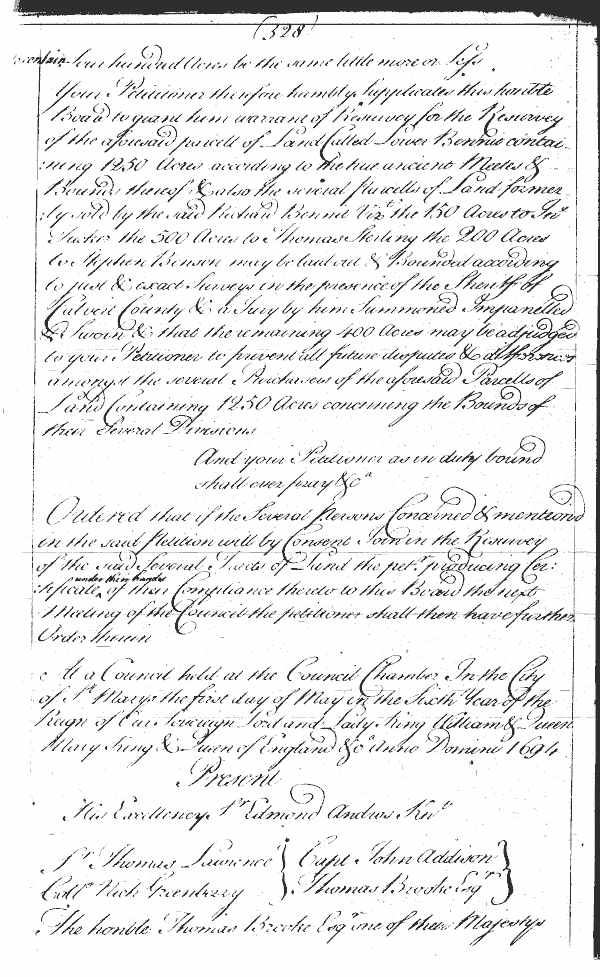 (328)
contain four hundred Acres be the same little more or Less
Your Petitioner therefore humbly Supplicates this honble
Board to grant him warrant of Resurvey for the Resurvey
of the aforesaid parcell of Land Called Lower Bennit contai-
:ning 1250 Acres according to the true ancient Meetes &
Bounds thereof & also the several Parcells of Land former
:ly sold by the said Richard Bennit Vizt the 150 Acres to Jno
Tucker the 500 Acres to Thomas Sterling the 200 Acres
to Stephen Benson may be laid out & Bounded according
to just & exact Surveys in the presence of the Sheriff of
Calvert County & a Jury by him Summoned Impanelled
& Sworn & that the remaining 400 Acres may be adjudged
to your Petitioner to prevent all future disputes & differences
amongst the several Purchasers of the aforesaid Parcells of
Land Containing 1250 Acres concerning the Bounds of
their Several Divisions
And your Petitioner as in duty bound
shall ever pray &ca
Ordered that if the Several Persons Concerned & mentiond
in the said Petition will by Consent Join in the Resurvey
of the said Several Tracts of Land the petr. producing Cer:
:tificate under their handes of their Compliance thereto to this Board the next
Meeting of the Council the petitioner shall then have further
Order therein
At a Council held at the Council Chamber In the City
of St Marys the first day of May in the Sixth Year of the
Reign of Our Sovereign Lord and Lady King William & Queen
Mary King & Queen of England &ca Anno Domini 1694
Present
His Excellency Sr Edmond Andros Knt
Sr Thomas Lawrence } Capt John Addison }
Collo Nich Greenberry } Thomas Brooke Esqr }
The honble Thomas Brooke Esqr one of their Majestys